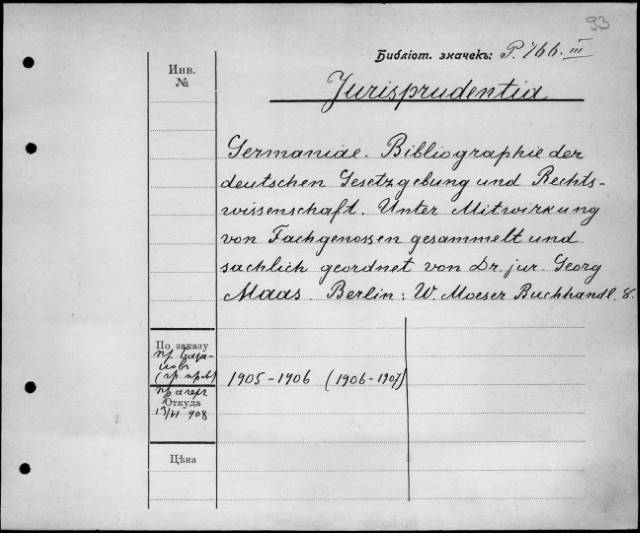 93
Библіот. значекъ: P. 766. III
Инв.
№
Jurisprudentia
Germaniae. Bibliographie der
deutschen Gesetzgebung und Rechts-
wissenschaft. Unter Mitwirkung
von Fachgenossen gesammelt und
sachlich geordnet von Dr. jur. Georg
Maas. Berlin: W. Moeser Buchhandl. 8.
По заказу
пр.
1905-1906 (1906-1907)
Откуда
13/XI 908
Цѣна